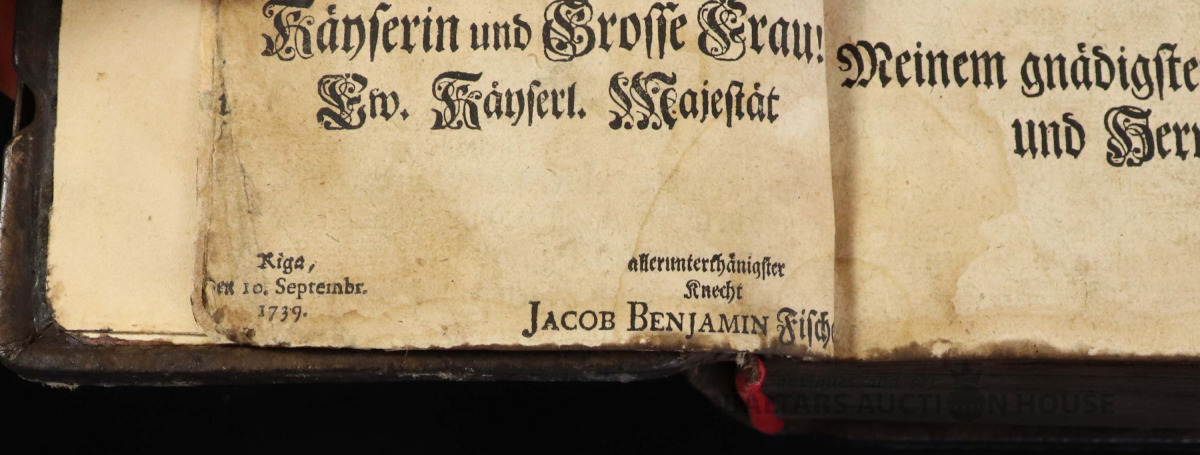 Käyserin und Grosse Frau!
Ew. Käyserl. Majestät
Riga,
den 10. Septembr.
1739.
allerunterthänigster
Knecht
JACOB BENJAMIN Fisch
Meinem gnädigste
und Herr
BALTARS AUCTION HOUSE